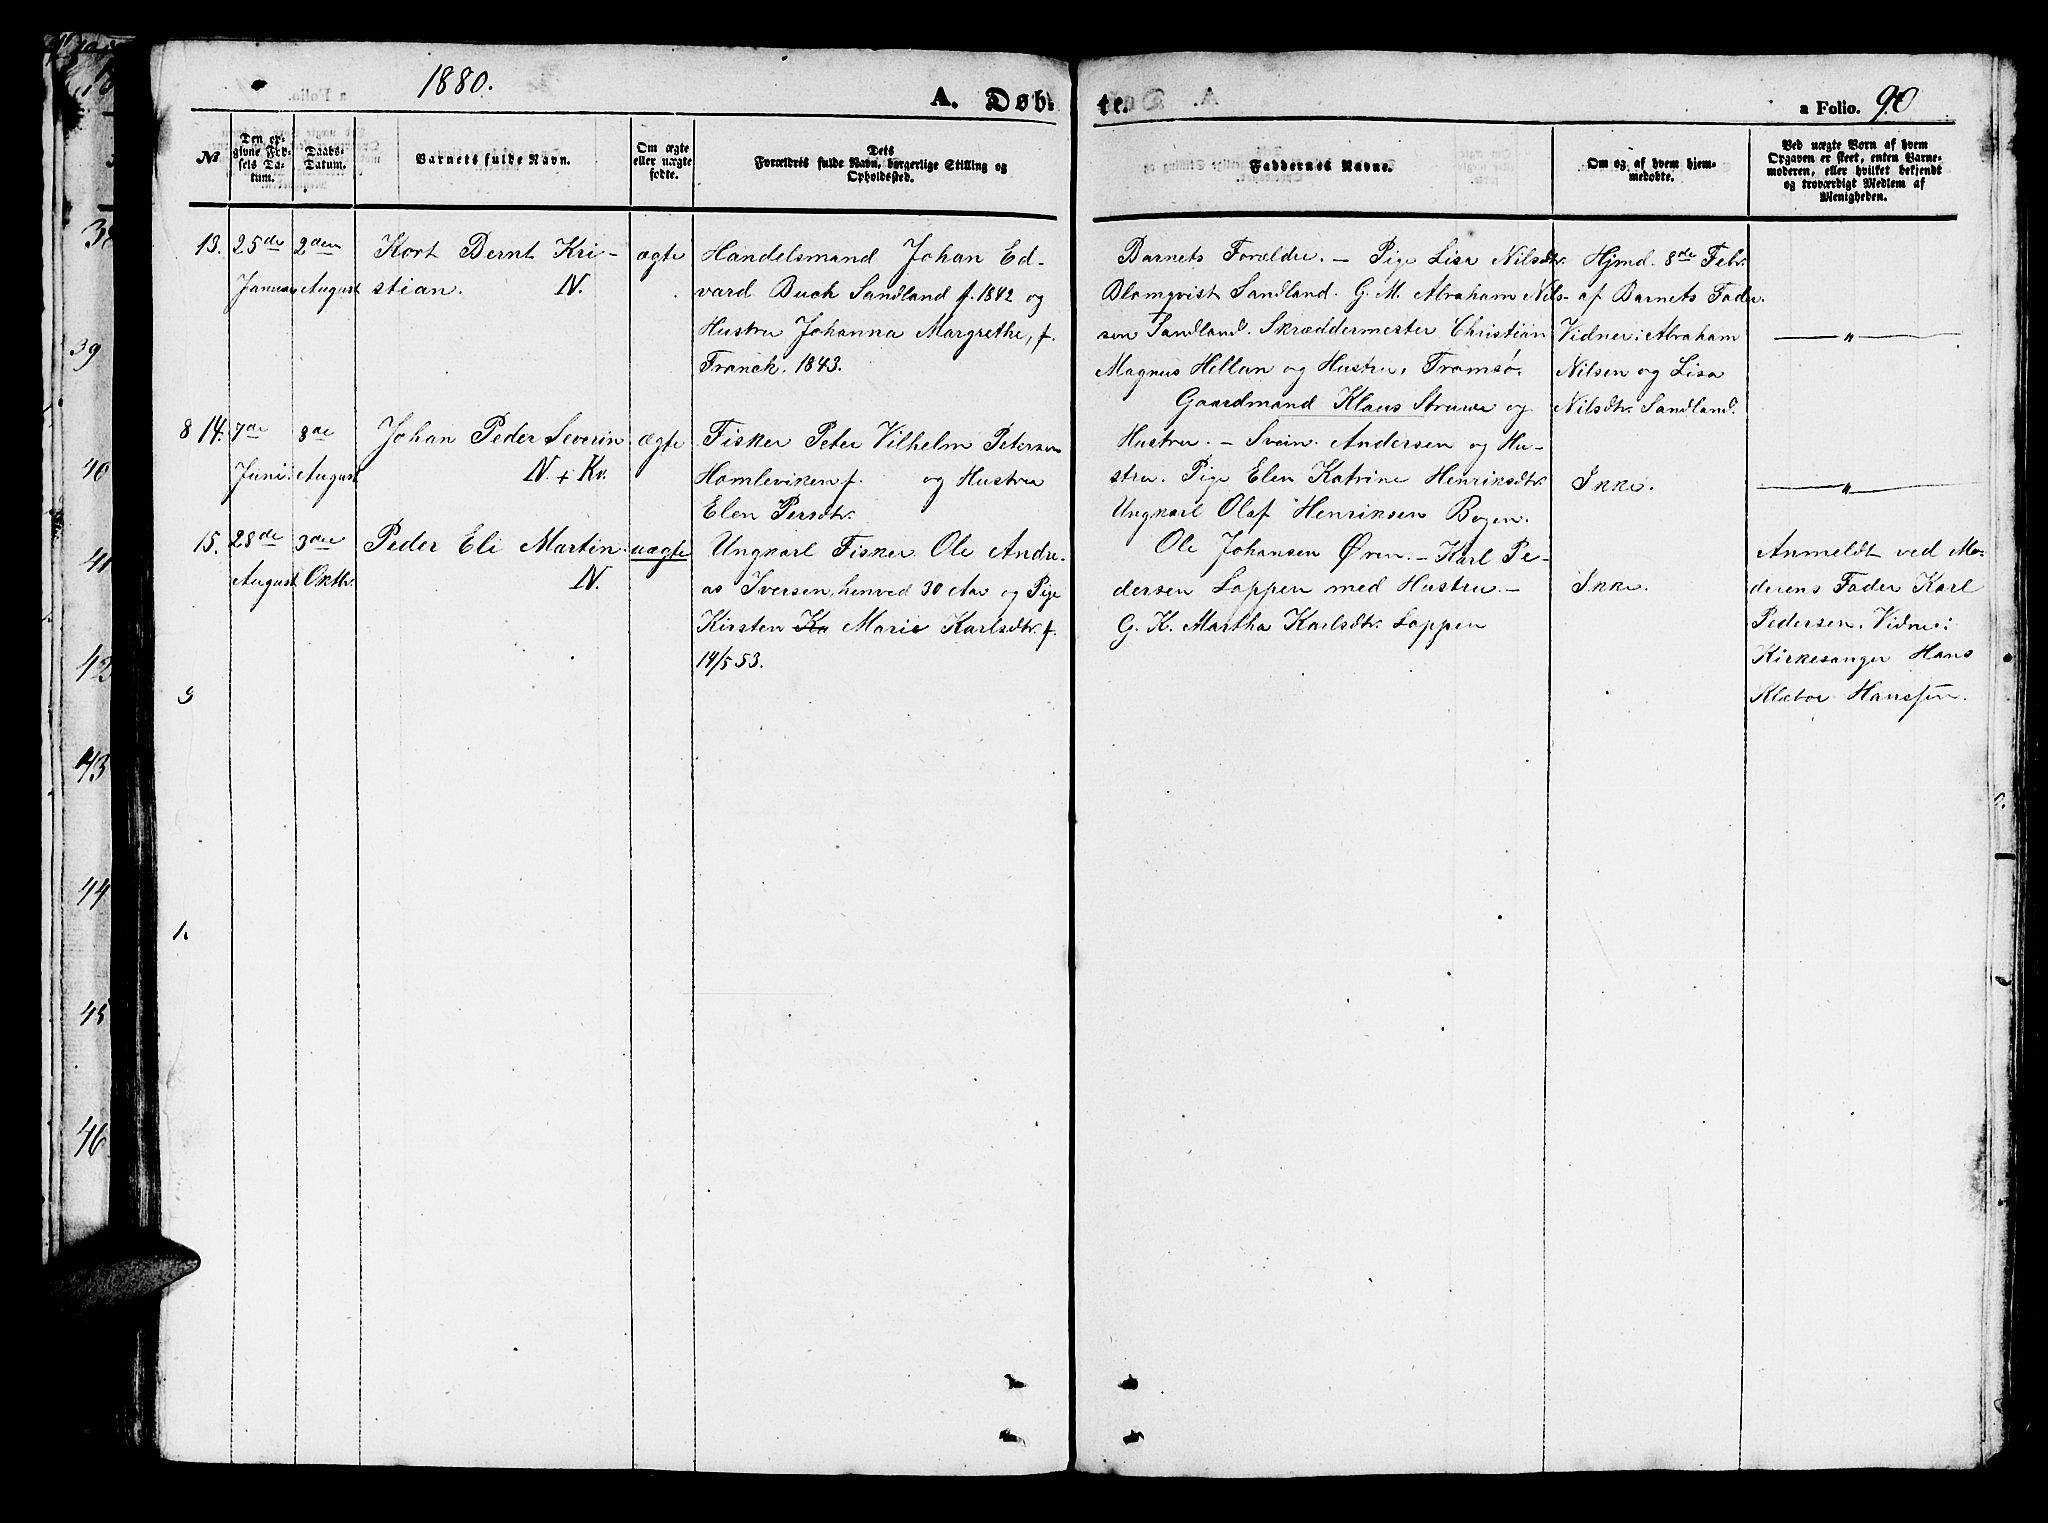 1880.
A. Døb-
te.
a Folio. 90
№
Den op-
givne Fød-
sels Da-
tum.
Daabs-
Datum.
Barnets fulde Navn.
Om ægte
eller uægte
fødte.
Dets
Forældris fulde Navn, borgerlige Stilling og
Opholdssted.
Faddernes Navne.
Om og af hvem hjem-
medøbte.
Ved uægte Born af hvem
Opgaven er skeet, enten Barne-
moderen, eller hvilket bekjendt
og troværdigt Medlem af
Menigheden.
13.
25de
Januar
2den
August
Kort Bernt Kri-
stian. N.
ægte
Handelsmand Johan Ed-
vard Buck Sandland f. 1842 og
Hustru Johanna Margrethe, f.
Franck. 1843.
Barnets Forældre. – Pige Lisa Nilsdtr.
Blomqvist Sandland. G. M. Abraham Nils-
sen Sandland. Skræddermester Christian
Magnus Hellan og Hustru, Tromsø.
Hjmd. 8de Febr.
af Barnets Fader.
Vidner: Abraham
Nilsen og Lisa
Nilsdtr. Sandland.
— " —
8 14.
7de
Juni
8de
August
Johan Peder Severin
N. + Kv.
ægte
Fisker Peter Vilhelm Petersen
Homleviken f. og Hustru
Elen Persdtr.
Gaardmand Klaus Struve og
Hustru. – Svein Andersen og Hu-
stru. Pige Elen Katrine Henriksdtr.
Ungkarl Olaf Henriksen Bogen.
Ikke.
— " —
15.
28de
August
3die
Oktbr.
Peder Eli Martin.
N.
uægte
Ungkarl Fisker Ole Andre-
as Iversen, henved 30 Aar og Pige
Kirsten Ka Marie Karlsdtr. f.
14/5 53.
Ole Johansen Øren. – Karl Pe-
dersen Loppen med Hustru –
G. K. Martha Karlsdtr. Loppen
Ikke.
Anmeldt ved Mo-
derens Fader Karl
Pedersen. Vidne:
Kirkesanger Hans
Klæboe Hanssen.
9
1.
38
39
40
41
42
43
44
45
46